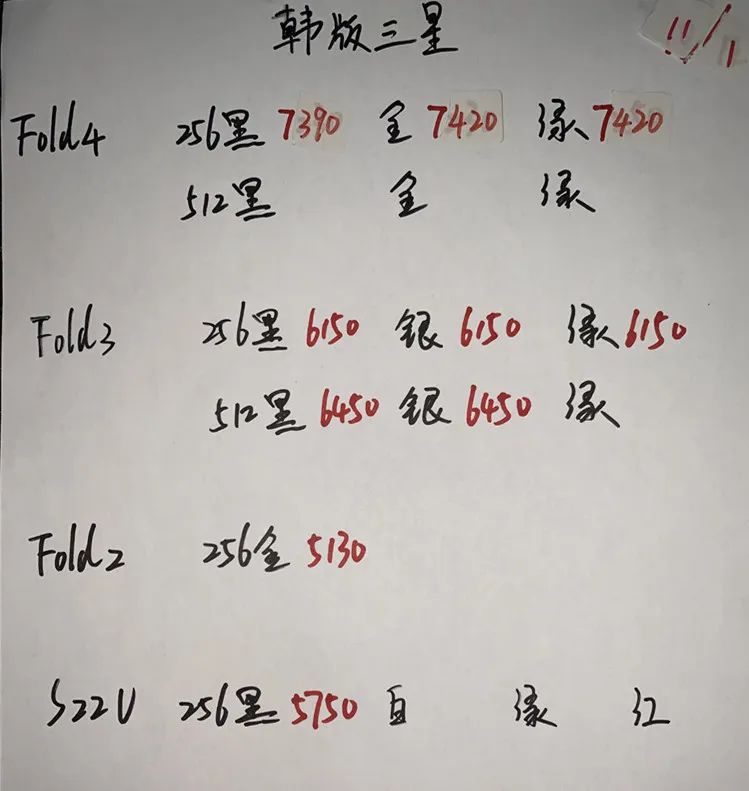 韩版三星 11/1
Fold4 256黑 7390 金 7420 绿 7420
512黑 金 绿
Fold3 256黑 6150 银 6150 绿 6150
512黑 6450 银 6450 绿
Fold2 256金 5130
S22U 256黑 5750 白 绿 红